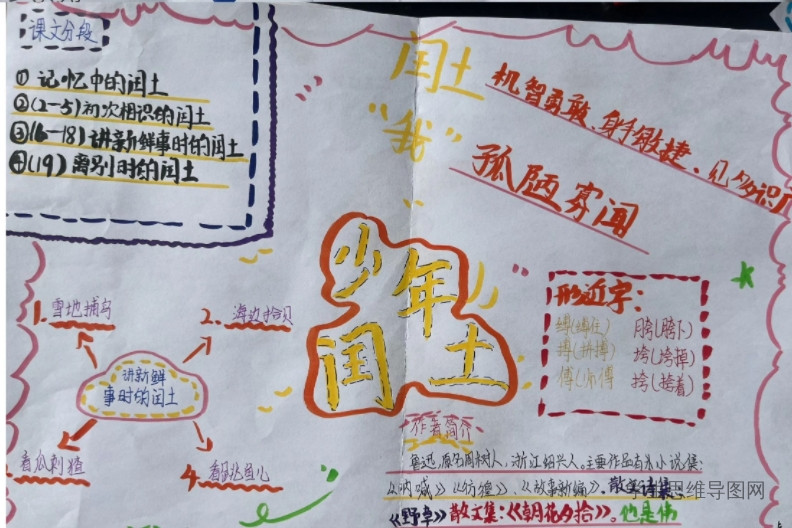 课文分段
①记忆中的闰土
②(2-5)初次相识的闰土
③(6-18)讲新鲜事时的闰土
④(19)离别时的闰土
闰土
机智勇敢、身手敏捷、见多识广
"我"
孤陋寡闻
少年
闰土
1.雪地捕鸟
2.海边拾贝
讲新鲜
事时的闰土
看瓜刺猹
4.看跳鱼儿
形近字:
缚(缚住) 胯(胯下)
搏(拼搏) 垮(垮掉)
傅(师傅 挎(挎着)
作者简介
鲁迅,原名周树人,浙江绍兴人。主要作品有小说集:
《呐喊》《彷徨》、《故事新编》,散文诗集:
《野草》散文集:《朝花夕拾》。他是伟
思维导图网